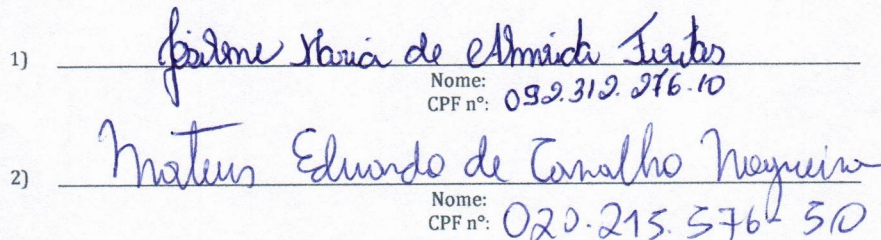 1) Josilene Maria de Almeida Freitas
Nome:
CPF nº: 092.312.276-10
2) Mateus Eduardo de Carvalho Nogueira
Nome:
CPF nº: 020.215.576-50